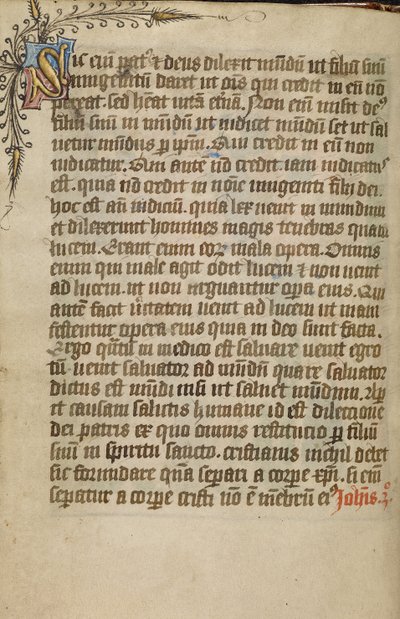 Sic eni pat' & deus dilexit mudu ut filiu suu
unigenitu daret ut ois qui credit in eu no
pereat. sed heat uita etna. Non eni misit de'
filiu suu in mudu ut iudicet mundu set ut sal
uetur mundus p ipm. Qui credit in eu non
iudicatur. Qui aute no credit. iam iudicatus
est. quia no credit in noie unigeniti filii dei.
hoc est aut iudiciu. quia lux uenit in mundum
et dilexerunt homines magis tenebras quam
lucem. Erant enim eor mala opera. Omnis
enim qui male agit odit lucem & non uenit
ad lucem. ut non arguantur opa eius. Qui
aute facit ueritatem uenit ad lucem ut mani
festentur opera eius quia in deo sunt facta.
Ergo quatu in medico est saluare uenit egro
tu uenit saluator ad mudum quare saluator
dictus est mudi nisi ut saluet mundum.
it causam salutis humane id est dilectione
dei patris ex quo omnis restitucio p filium
suum in spiritu sancto. cristianus nichil debet
sic formidare qua separi a corpe xpi. si eni
separatur a corpe cristi no e mebru ei' Johis. 3°